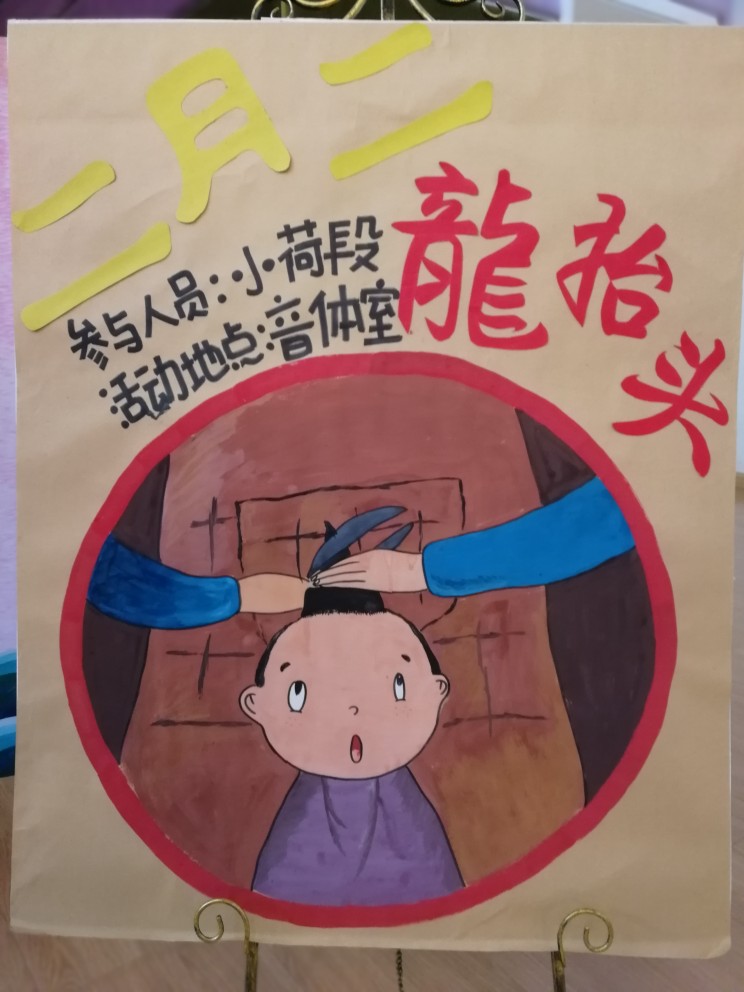 二月二
龍抬头
参与人员:小荷段
活动地点:音体室